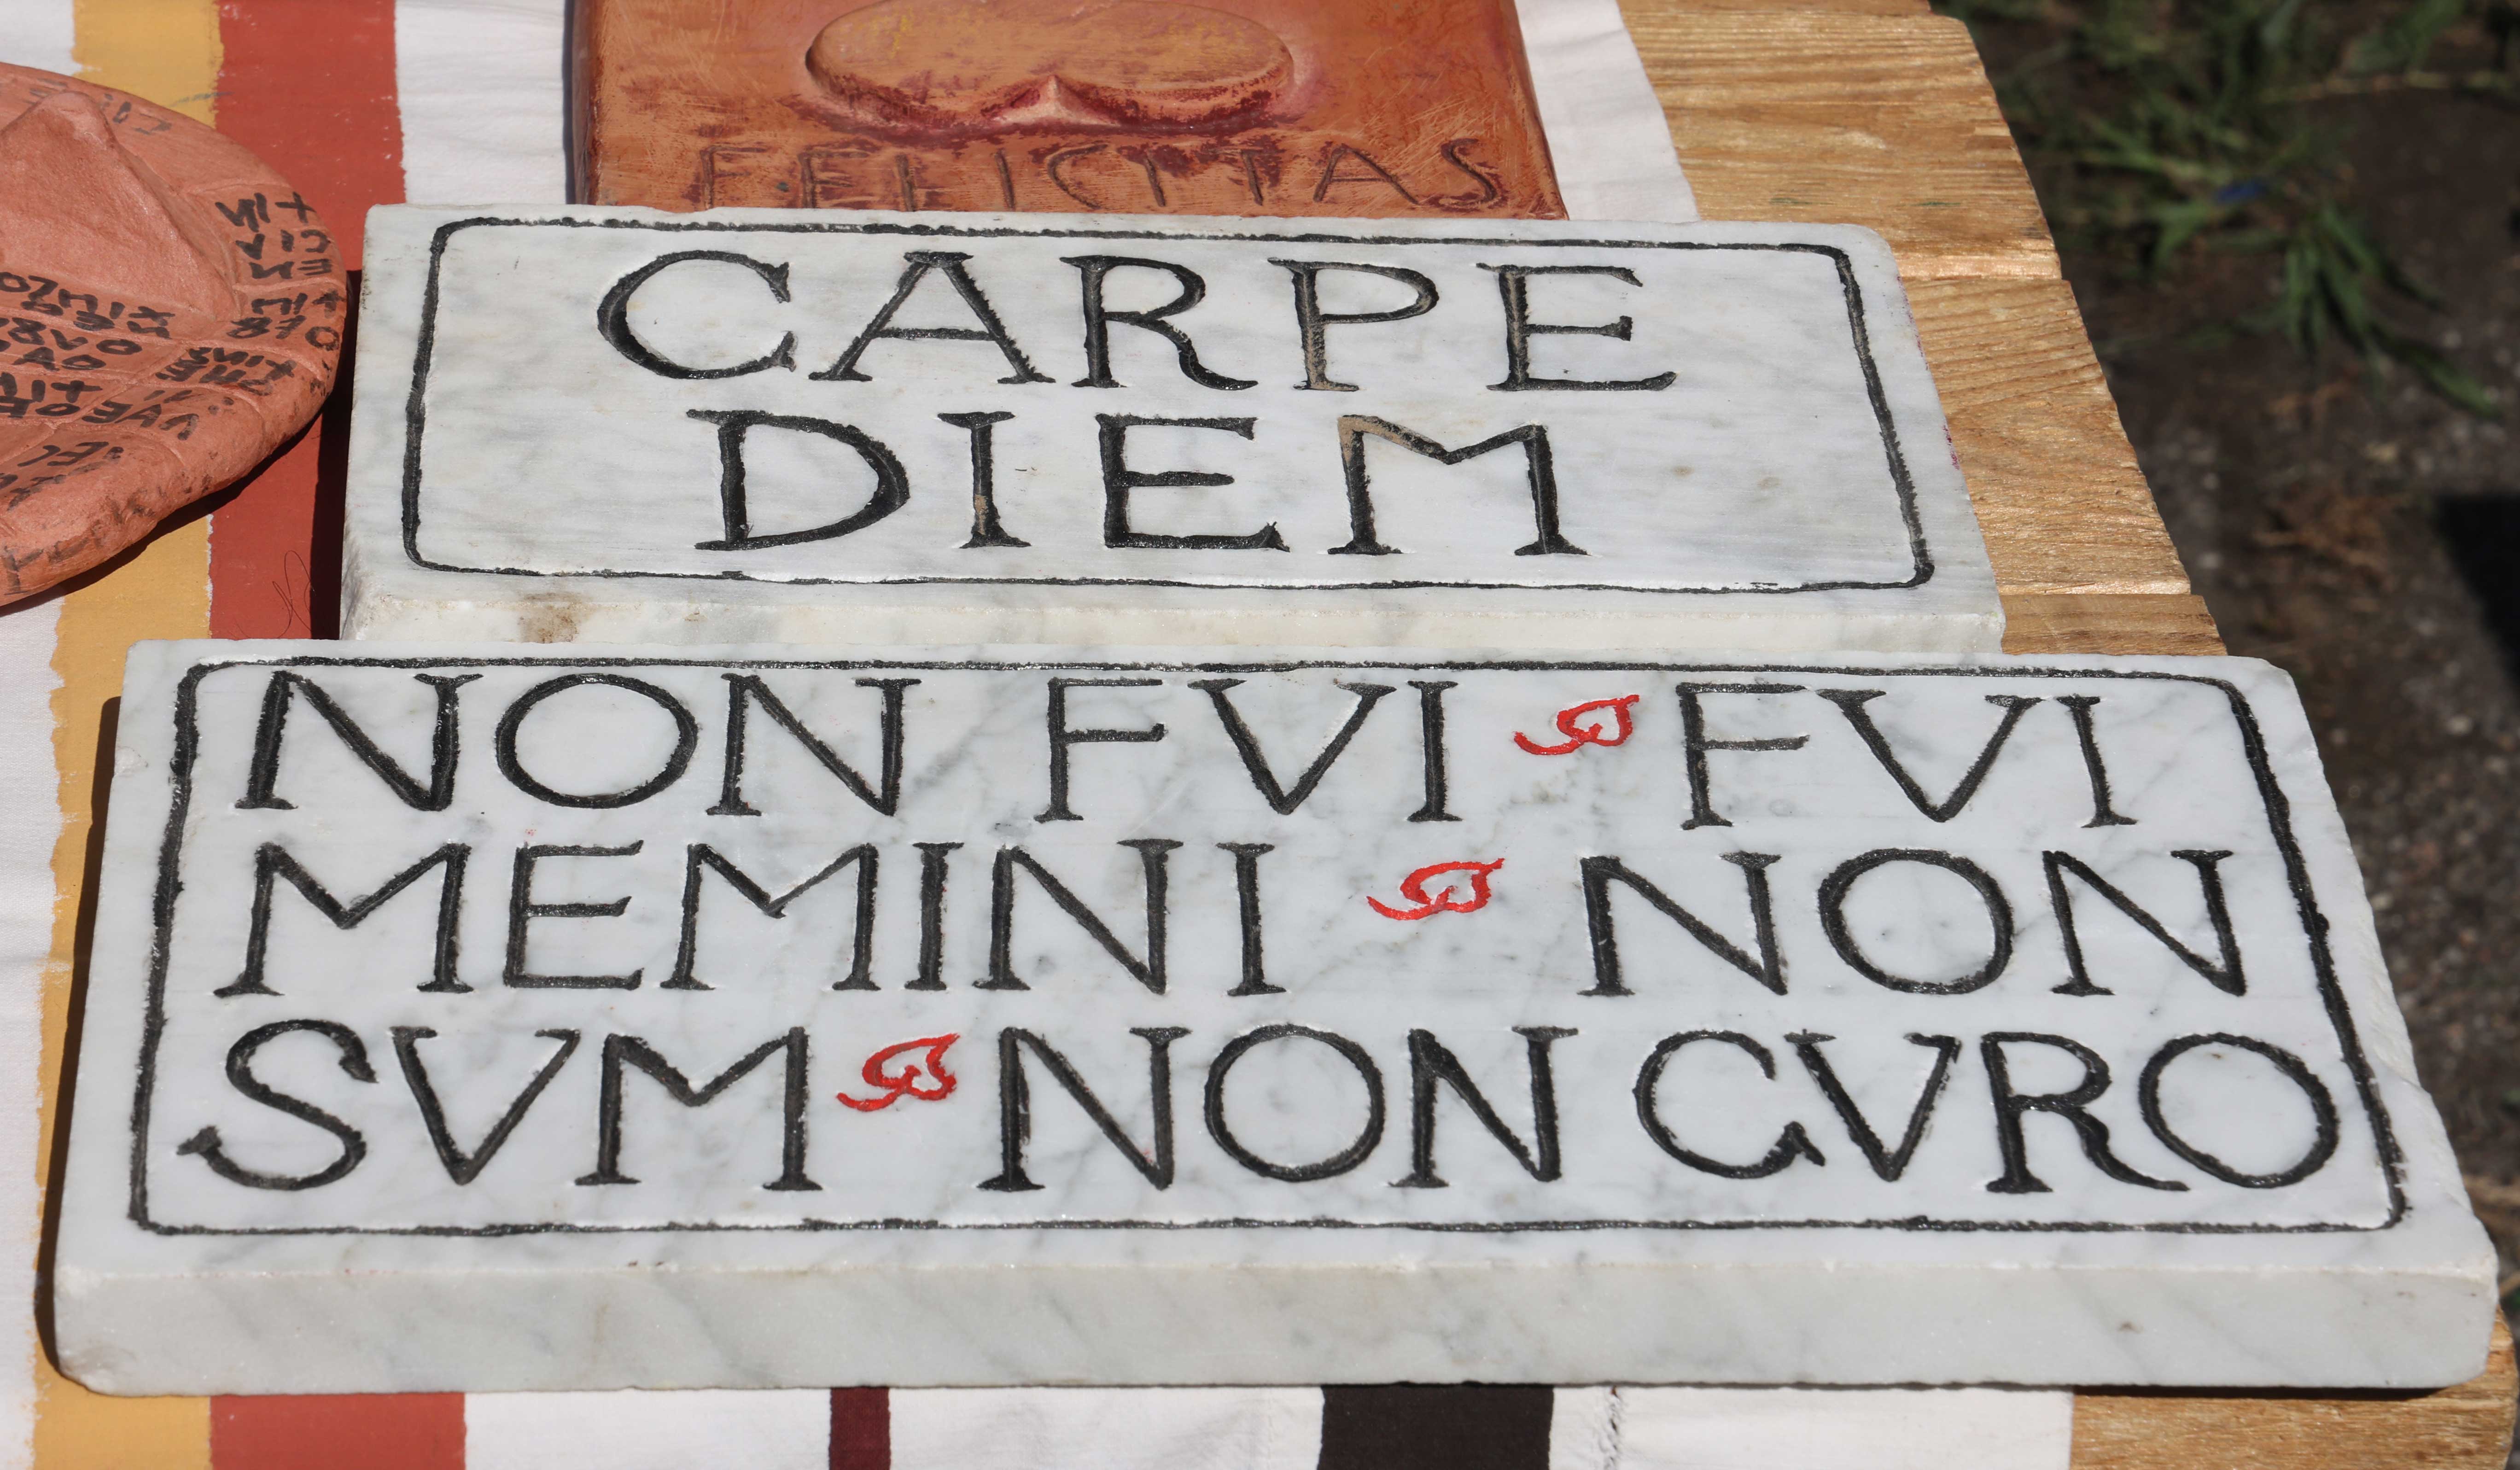 FELICITAS
CARPE
DIEM
NON FVI ❧ FVI
MEMINI ❧ NON
SVM ❧ NON CVRO